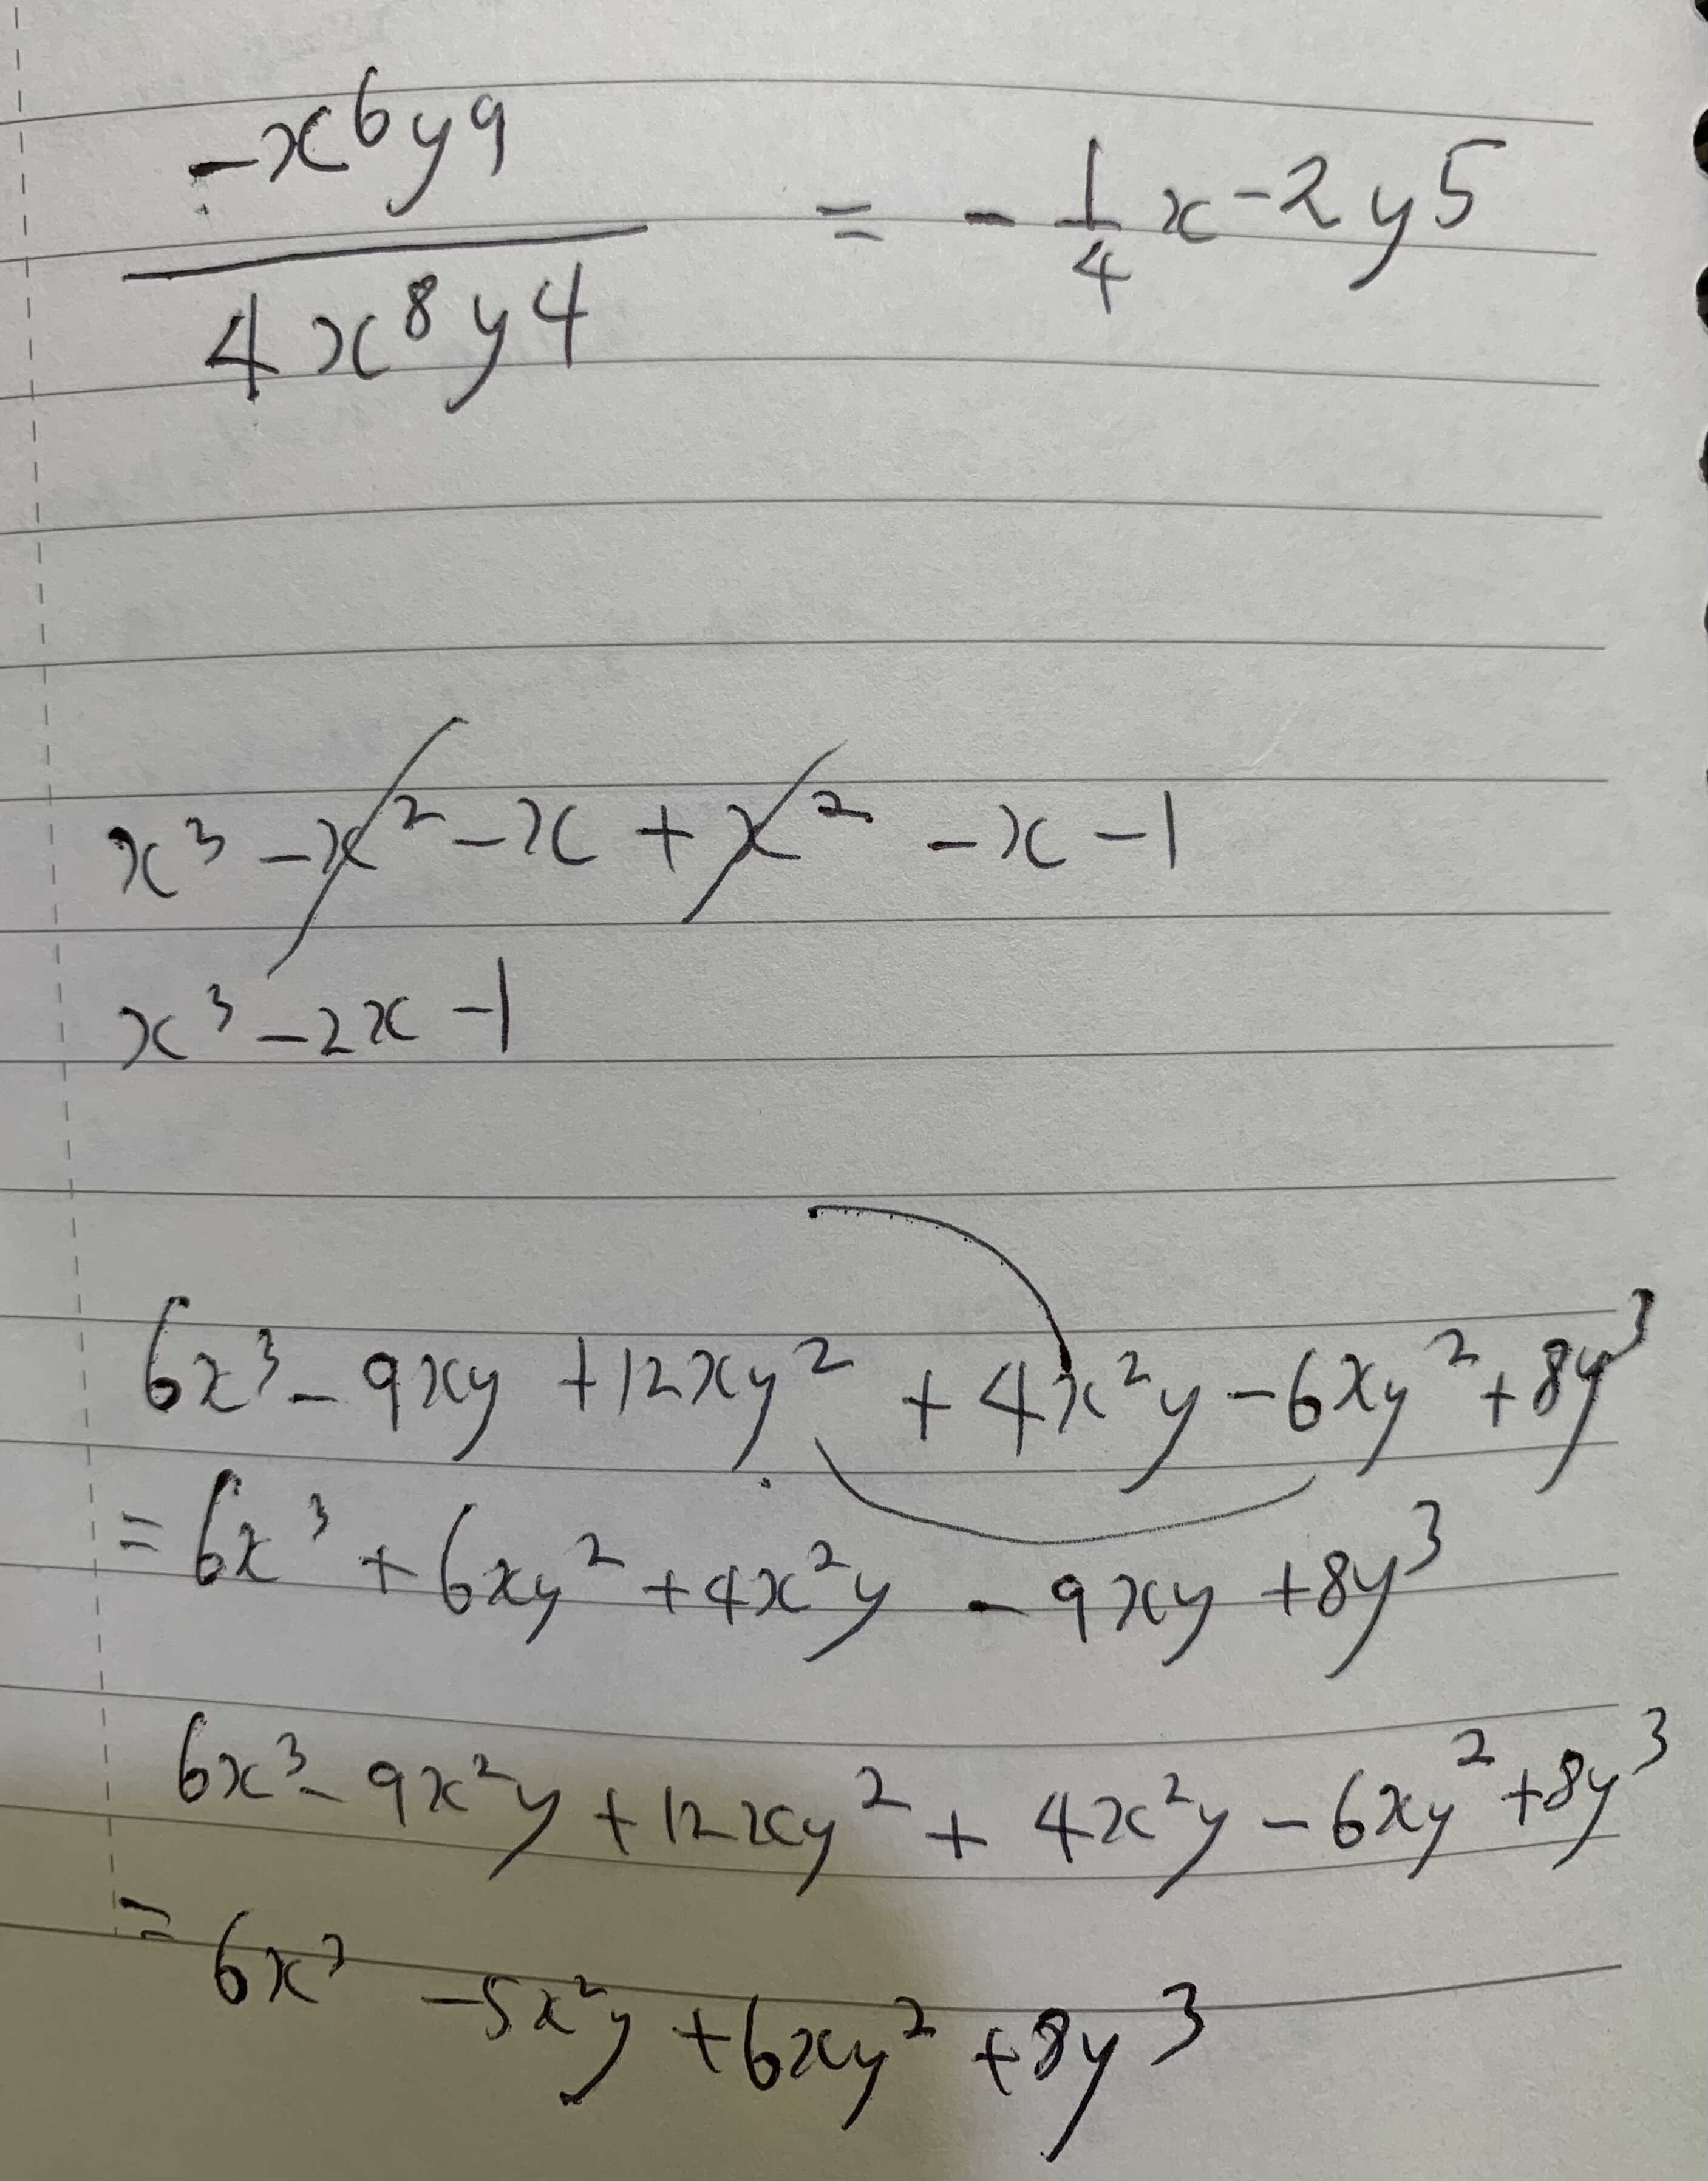 -x⁶y⁹ / 4x⁸y⁴ = -1/4 x⁻²y⁵
x³ - x² - x + x² - x - 1
x³ - 2x - 1
6x³ - 9xy + 12xy² + 4x²y - 6xy² + 8y³
= 6x³ + 6xy² + 4x²y - 9xy + 8y³
6x³ - 9x²y + 12xy² + 4x²y - 6xy² + 8y³
= 6x³ - 5x²y + 6xy² + 8y³